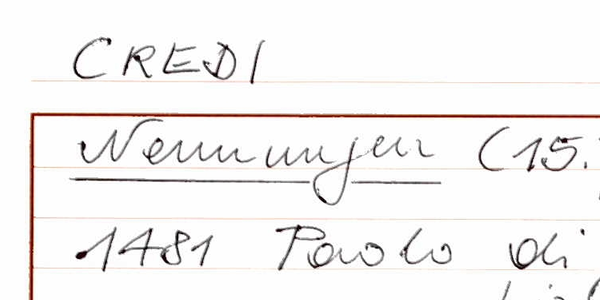 CREDI
Nennungen (15.
1481 Paolo di